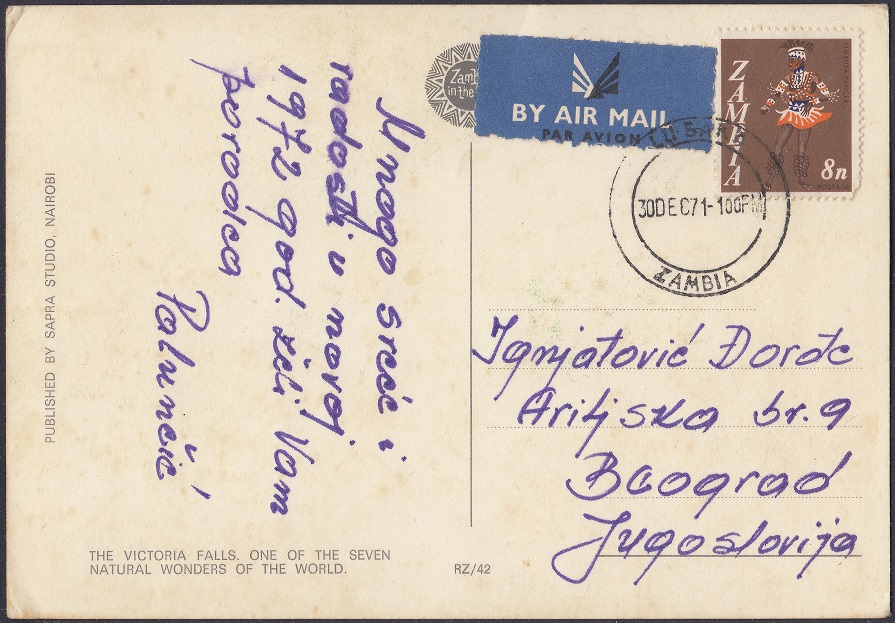 Mnogo sreće i
radosti u novoj
1972 god. želi Vam
porodica
Palunčić
PUBLISHED BY SAPRA STUDIO, NAIROBI
THE VICTORIA FALLS. ONE OF THE SEVEN
NATURAL WONDERS OF THE WORLD.
RZ/42
Zam
in the
BY AIR MAIL
PAR AVION
ZAMBIA
8n
POSTAGE
LUSAKA
30DEC71-100PM
ZAMBIA
Ignjatović Đorđe
Ariljska br. 9
Beograd
Jugoslovija